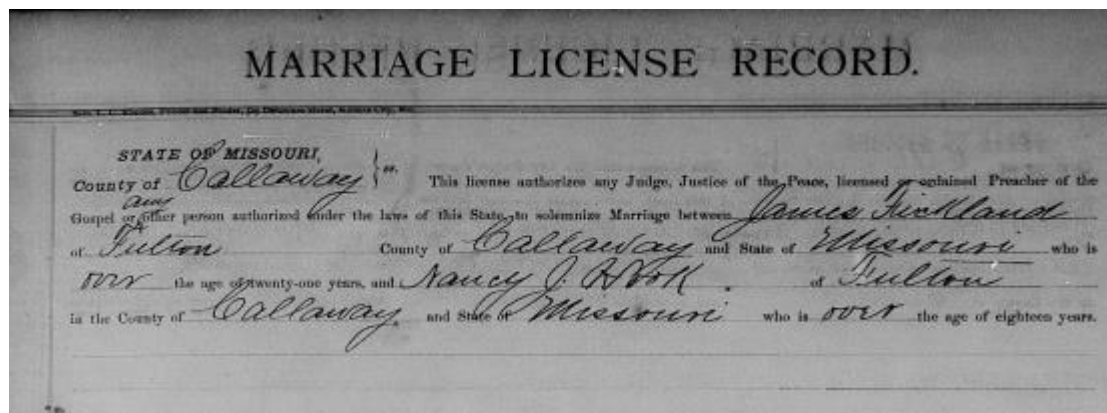 MARRIAGE LICENSE RECORD.
STATE OF MISSOURI,
County of Callaway } ss. This license authorizes any Judge, Justice of the Peace, licensed or ordained Preacher of the
any
Gospel or other person authorized under the laws of this State, to solemnize Marriage between James Kickland
of Fulton County of Callaway and State of Missouri who is
over the age of twenty-one years, and Nancy J. Hook of Fulton
in the County of Callaway and State of Missouri who is over the age of eighteen years.